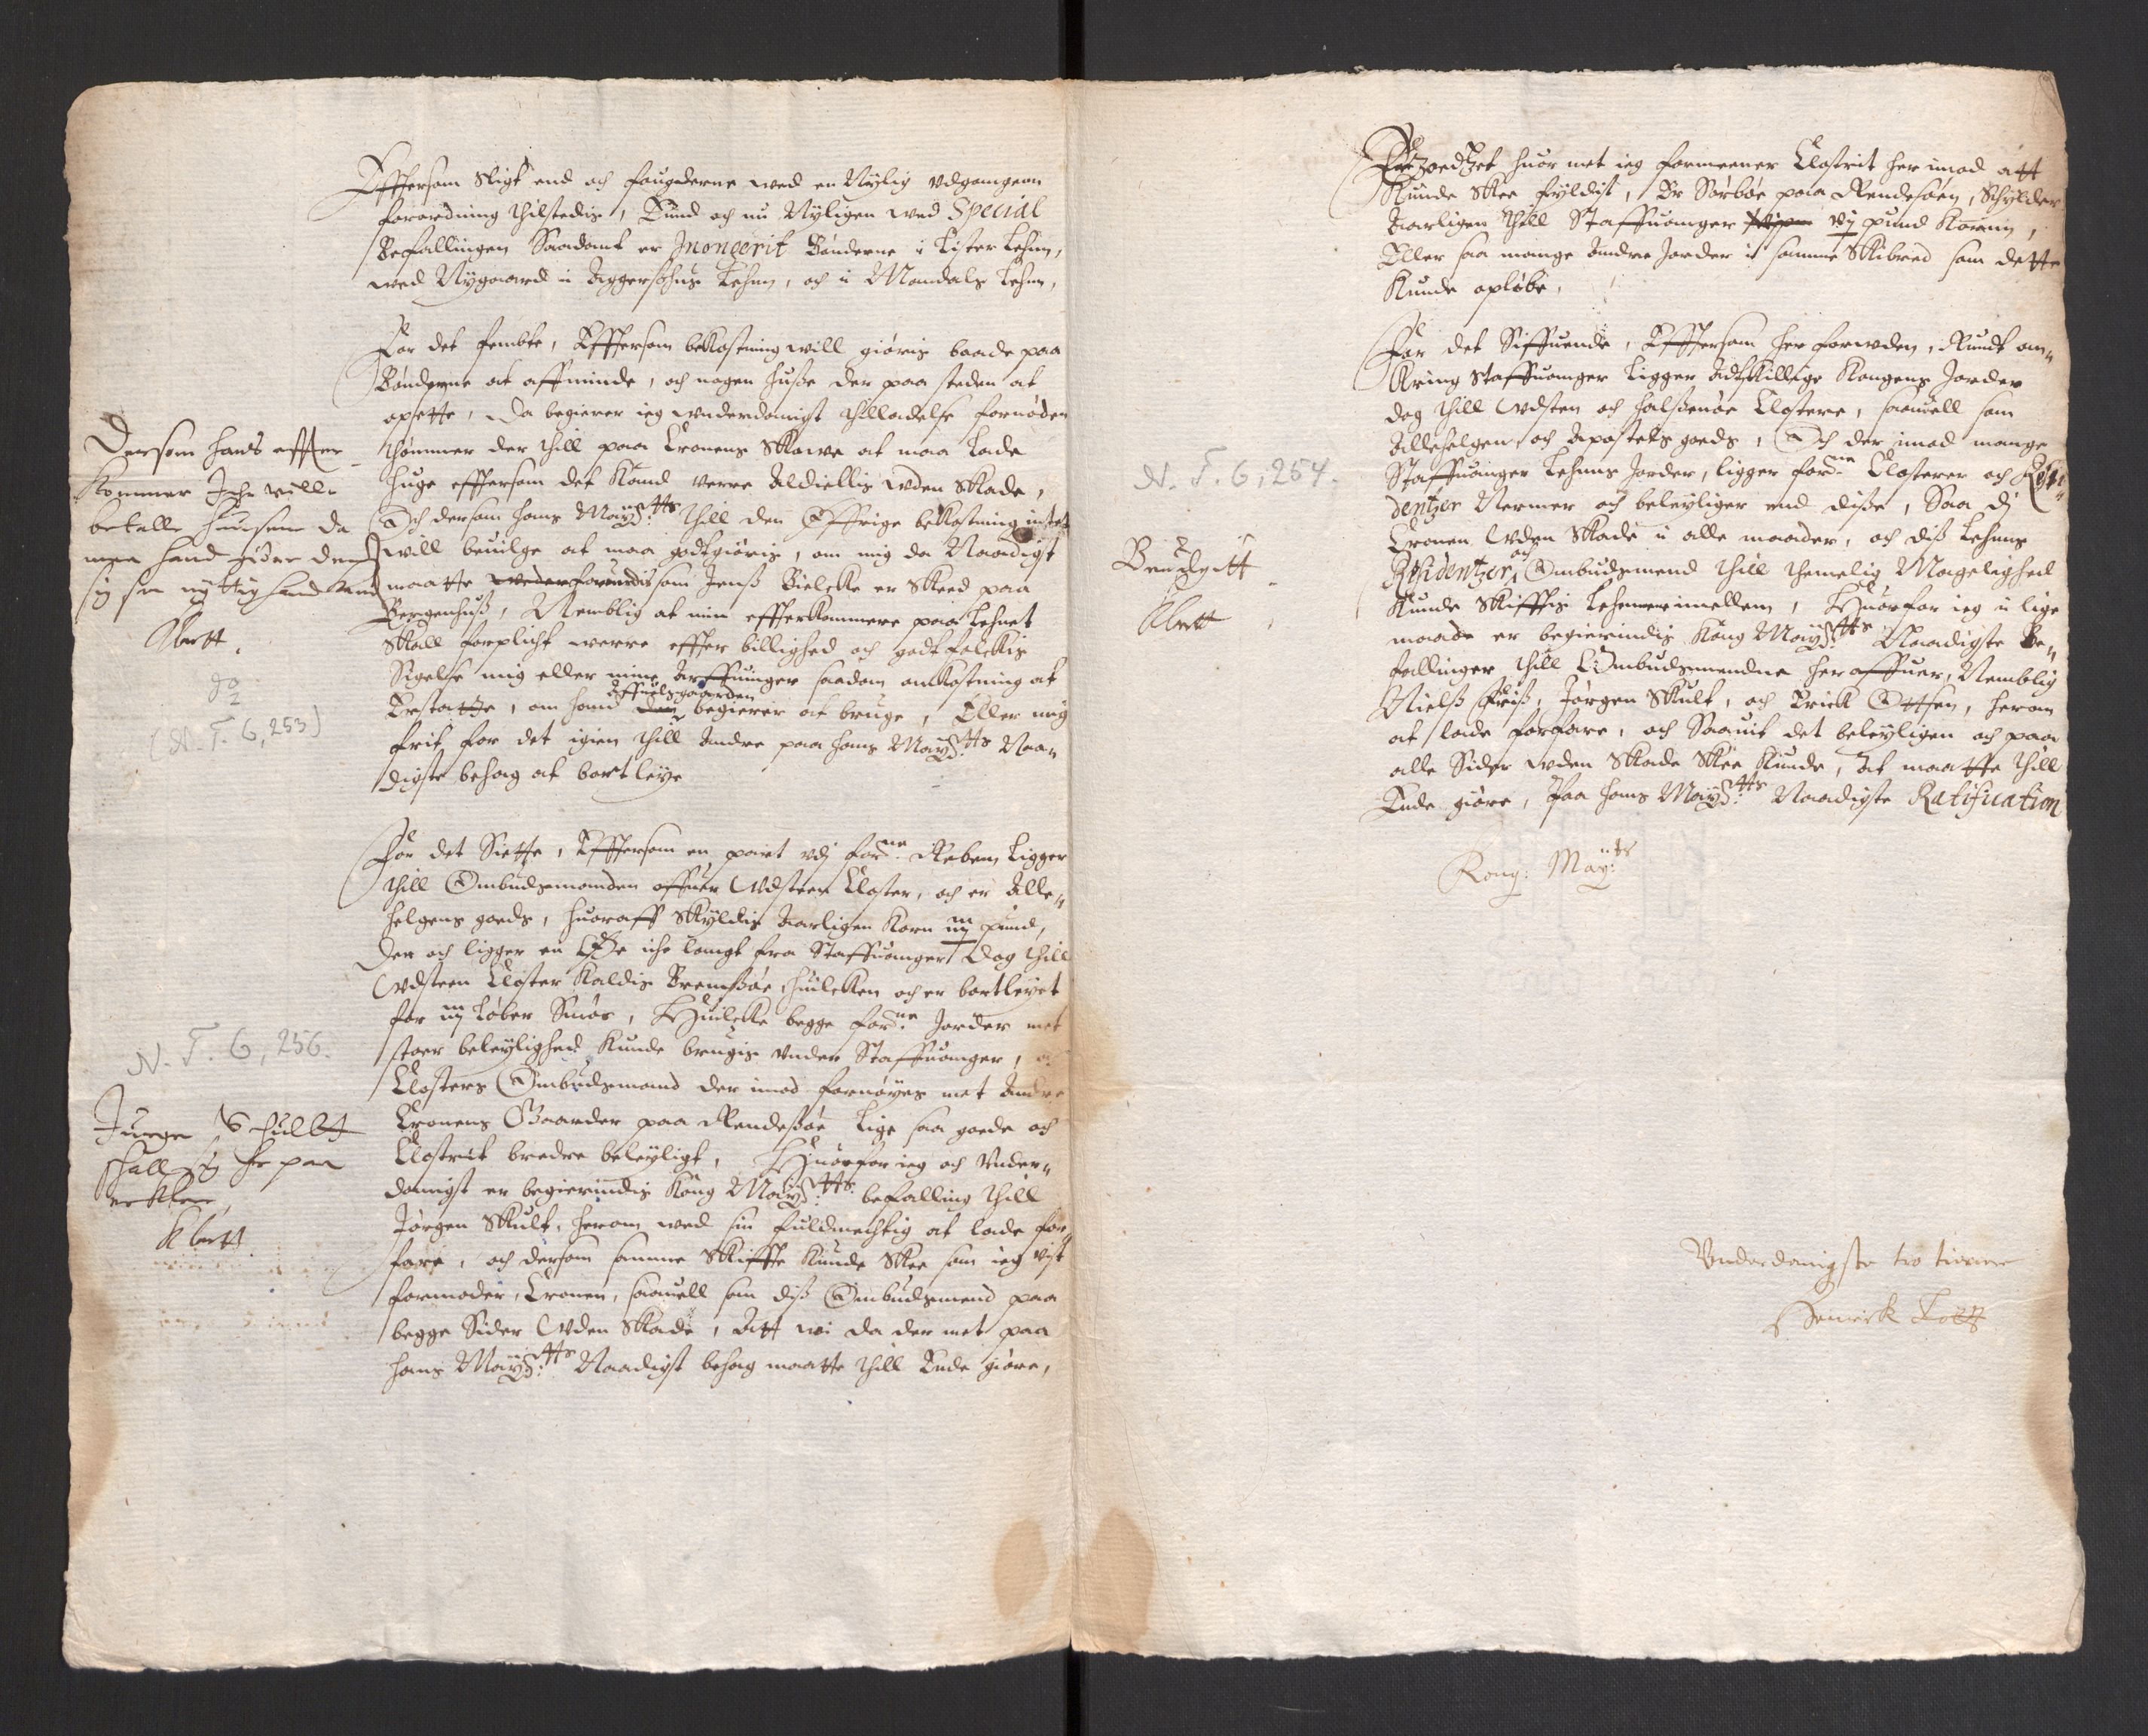 Effthersom Sligt end och fougderne wed en Nylig vdgangenn
forordning thilstedis, End och nu Nyligen wed Special
Befallingen Saadant er Inongerit Bønderne i Lister Lehnn,
wed Nygaard i Aggershus Lehnn, och i Mandals Lehnn,
For det fembte, Effthersom bekostning will giøris baade paa
Bønderne at affminde, och nogen husse der paa steden at
opsette, Da begierer ieg vnderdanigst thilladelse fornøden
thømmer der thill paa Cronens Skowe at maa lade
huge effthersom det Kand werre Aldielis vden Skade,
Och dersom hans Mayˢ:ᵗᵗˢ thill den Øffrige bekostning intet
will beuilge at maa godtgiøris, om mig da Naadigst
maatte wederfaris som Jenss Bielcke er Skeed paa
Bergenhuss, Nemblig at min effterkommere paa Lehnet
Skall forplicht werre effter billighed och godtfolckis
Sigelse mig eller mine Arffuinger saadan ankostning at
Erstatte, om hand affuelsgaarden begierer at bruge, Eller mig
frit for det igien thill Andre paa hans Mayˢ:ᵗᵗˢ Naa„
digste behag at bortleye
Dersom hans effter
kommer Iche wille
betalle husene da
maa hand giøre dem
sig saa nyttig hand kand
(N. T. 6, 253)
For det Siette, Effthersom en part vdj forⁿᵉ: Rebem Ligger
thill Ombudsmanden offuer Vdsteen Closter, och er Alle„
helgens goeds, huoraff Skyldis Aarligen Korn iiij pund,
Der och ligger en Øe iche langt fra Staffuanger Dog thill
Vdsteen Closter Kaldis Bremssøe, huilcken och er bortleyet
for iiij Løber Smør, Huilcke begge forⁿᵉ: Jorder met
stoer beleylighed Kunde brugis vnder Staffuanger,
Closters Ombudsmand der imod fornøyes met Andre
Cronens Gaarder paa Rendessøe Lige saa goede och
Clostrit bredre beleyligt, Huorfor ieg och Vnder„
danigst er begierindis Kong Mayˢ:ᵗᵗˢ befalling thill
Jørgen Skult, herom wed sin fuldmechtig at lade for„
fare, och dersom samme Skiffte Kunde Skee som ieg vist
formoder, Cronen, saauell som diss Ombudsmend paa
begge Sider Vden Skade, Att wi da der met paa
hans Mayˢ:ᵗᵗˢ Naadigst behag maatte thill Ende giøre,
N. T. 6, 256.
Jurgen Schullt
schall sig her paa
erklere
huor met ieg formeener Clostrit her imod att
Kunde Skee fyldist, Er Sørbøe paa Rendesøen, Schylder
Aarligen thill Staffuanger vij pund Kornn,
Eller saa mange Andre Jorder i samme Skibred som dette
Kunde opløbe,
For det Siffuende, Effthersom her forwden, Rundt om„
Kring Staffuanger Ligger Adtskillige Kongens Jorder
dog thill Vdsten och Halssenøe Clostere, saauell som
Allehelgen och Apostels goeds, Och der imod mange
Staffuanger Lehnns Jorder, ligger forⁿᵉ Closterer och Resi„
dentzer Nermer och beleyliger end disse, Saa dj
Cronen Vden Skade i alle maader, och diss Lehnns
Residentzer och Ombudsmend thill themelig Magelighed
Kunde Skifftis Lehnene imellem, Huorfor ieg i lige
maade er begierindis Kong Mayˢ:ᵗᵗˢ Naadigste Be„
fallinger thill Ombudsmendne her offuer, Nemblig
Nielss Friss, Jørgen Skult, och Erick Ottsen, herom
at lade forfare, och Saauit det beleyligen och paa
alle Sider vden Skade Skee Kunde, At maatte thill
Ende giøre, Paa hans Mayˢ:ᵗᵗˢ Naadigste Ratification
N. T. 6, 254.
Beuilgitt
Kong: Mayᵗˢ
Vnderdanigste tro tienere
Henrick